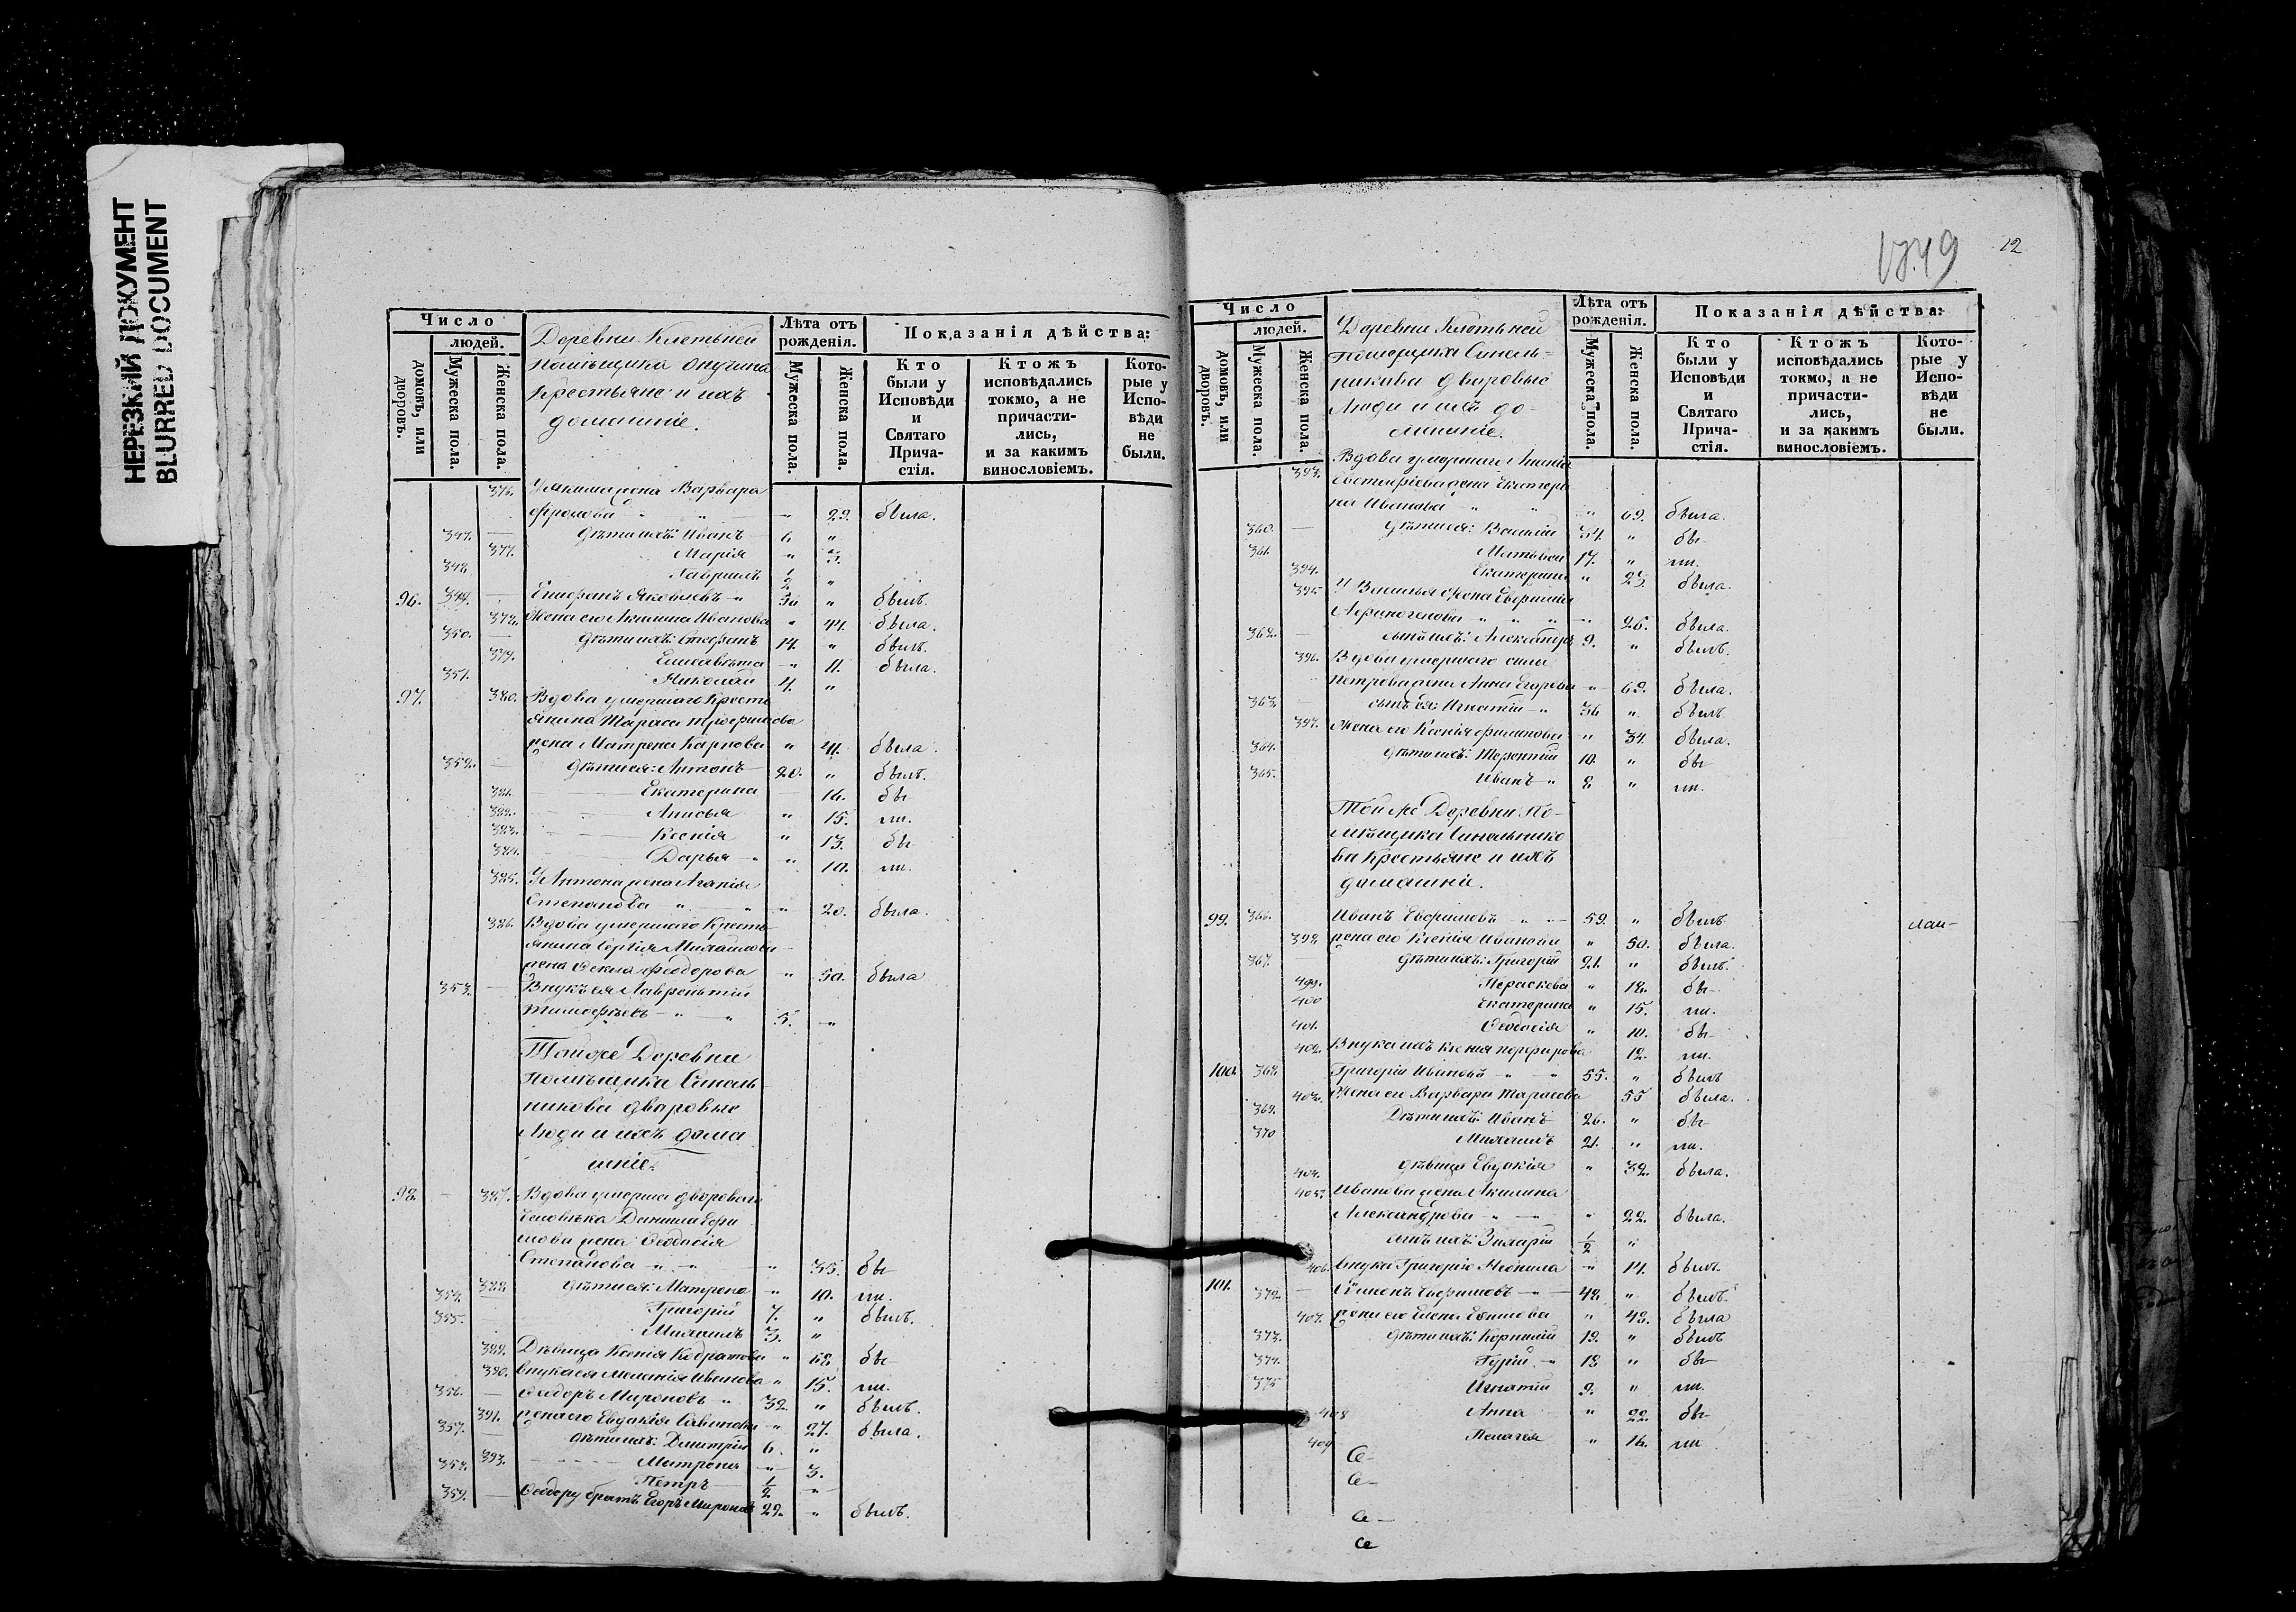 НЕРЕЗКИЙ ДОКУМЕНТ
BLURRED DOCUMENT
Число
людей.
домовъ, или дворовъ.
Мужеска пола.
Женска пола.
Деревни
помѣщика
Крестьяне и ихъ
домашніе.
Лѣта отъ рожденія.
Мужеска пола.
Женска пола.
Показанія дѣйства:
Кто были у Исповѣди и Святаго Причастія.
Ктожъ исповѣдались токмо, а не причастились, и за какимъ винословіемъ.
Которые у Исповѣди не были.
376. жена Варвара
" 29. была.
347. дѣти ихъ: Иванъ 6 "
377. Марія " 3.
348 Гавріилъ 1/2 "
96. 349. Яковлевъ " 50 " былъ.
378. Жена его Акилина Иванова " 44. была.
350. дѣти ихъ: Стефанъ 14. " былъ.
379. Елисавета " 11. была.
351. Николай 4. "
97. 380. Вдова умершаго Кресть
янина Тараса
жена Матрена Карпова " 41. была.
352. дѣти ея: Антонъ 20. " былъ.
381. Екатерина 16. бы-
382. Анисья " 15. ли.
383. Ксенія " 13. бы-
384. Дарья " 10. ли.
385. У Антона жена
Степанова " " 20. была.
386. Вдова умершаго Кресть
янина Сергія Михайлова
жена Ѳекла Феодорова " 50. была
353. Внукъ ея Лаврентій
Тимофѣевъ " " 5. "
Той же Деревни
Помѣщика Синель
никова дворовые
Люди и ихъ дома
шніе.
98. 387. Вдова умерша двороваго
человѣка
жена Ѳеодосія
Степанова " " 35. бы-
388 дѣти ея: Матрона " 10. ли.
354. Григорій 7. " былъ.
355. Михаилъ 3. "
389. Дѣвица Ксенія " бы-
390. внука ея Меланія Иванова " 15. ли.
356. Ѳеодоръ Мироновъ " 32. " былъ.
391. жена его Евдокія " 27. была.
357. дѣти ихъ: Димитрій 6. "
393. Матрона " 3.
358. Петръ 1/2 "
359. Ѳеодору братъ Егоръ Мироновъ 22. " былъ.
12
Число
людей.
домовъ, или дворовъ.
Мужеска пола.
Женска пола.
Деревни
Помѣщика Синель=
никова дворовые
Люди и ихъ до-
машніе.
Лѣта отъ рожденія.
Мужеска пола.
Женска пола.
Показанія дѣйства:
Кто были у Исповѣди и Святаго Причастія.
Ктожъ исповѣдались токмо, а не причастились, и за какимъ винословіемъ.
Которые у Исповѣди не были.
393. Вдова умершаго
жена Екатери
на Иванова " " " 69. была.
360. дѣти ея: Василій 34. " бы-
361. Матвей 17. " ли.
394. Екатерина " 23. была.
395 У Василья жена
" " " 26. была.
362. сынъ ихъ: Александръ 9. " былъ.
396. Вдова умершаго
Петрова жена Анна Егорова " 69. была.
363. сынъ ея: Игнатій " 36 " былъ
397. Жена его Ксенія " 34. была.
364. дѣти ихъ: Терентій 10. " бы
365. Иванъ " 8 " ли.
Той же Деревни По-
мѣщика Синельнико
ва Крестьяне и ихъ
домашніе.
99. 366. Иванъ Евфимовъ " " 59. " былъ
398 жена его Ксенія Иванова " 50. была.
367. дѣти ихъ: Григорій 21. " былъ.
499. Пераскева " 18. бы-
400 Екатерина " 15. ли.
401. Ѳеодосія " 10. бы-
402. Внука ихъ Ксенія 12. ли.
100. 368 Григорій Ивановъ " " 55. " былъ
403. Жена его Варвара Тарасова 55 была.
369. Дѣти ихъ: Иванъ 26. " бы-
370 Михаилъ 21. " ли.
404. дѣвица Евдокія " 32. была.
405. Иванова жена Акилина
Александрова " " " 22. была.
сынъ ихъ: 1/2 "
406. внука Григорію " 14.
101. 372. Евфимовъ " 48. " былъ.
407. жена его Елена " 48. была
373. дѣти ихъ: 19. " былъ
374. Гурій " 12 " бы-
375 Игнатій 9. " ли.
408 Анна " 22. бы-
409 Пелагея " 16. ли
Се-
Се-
Се-
Се